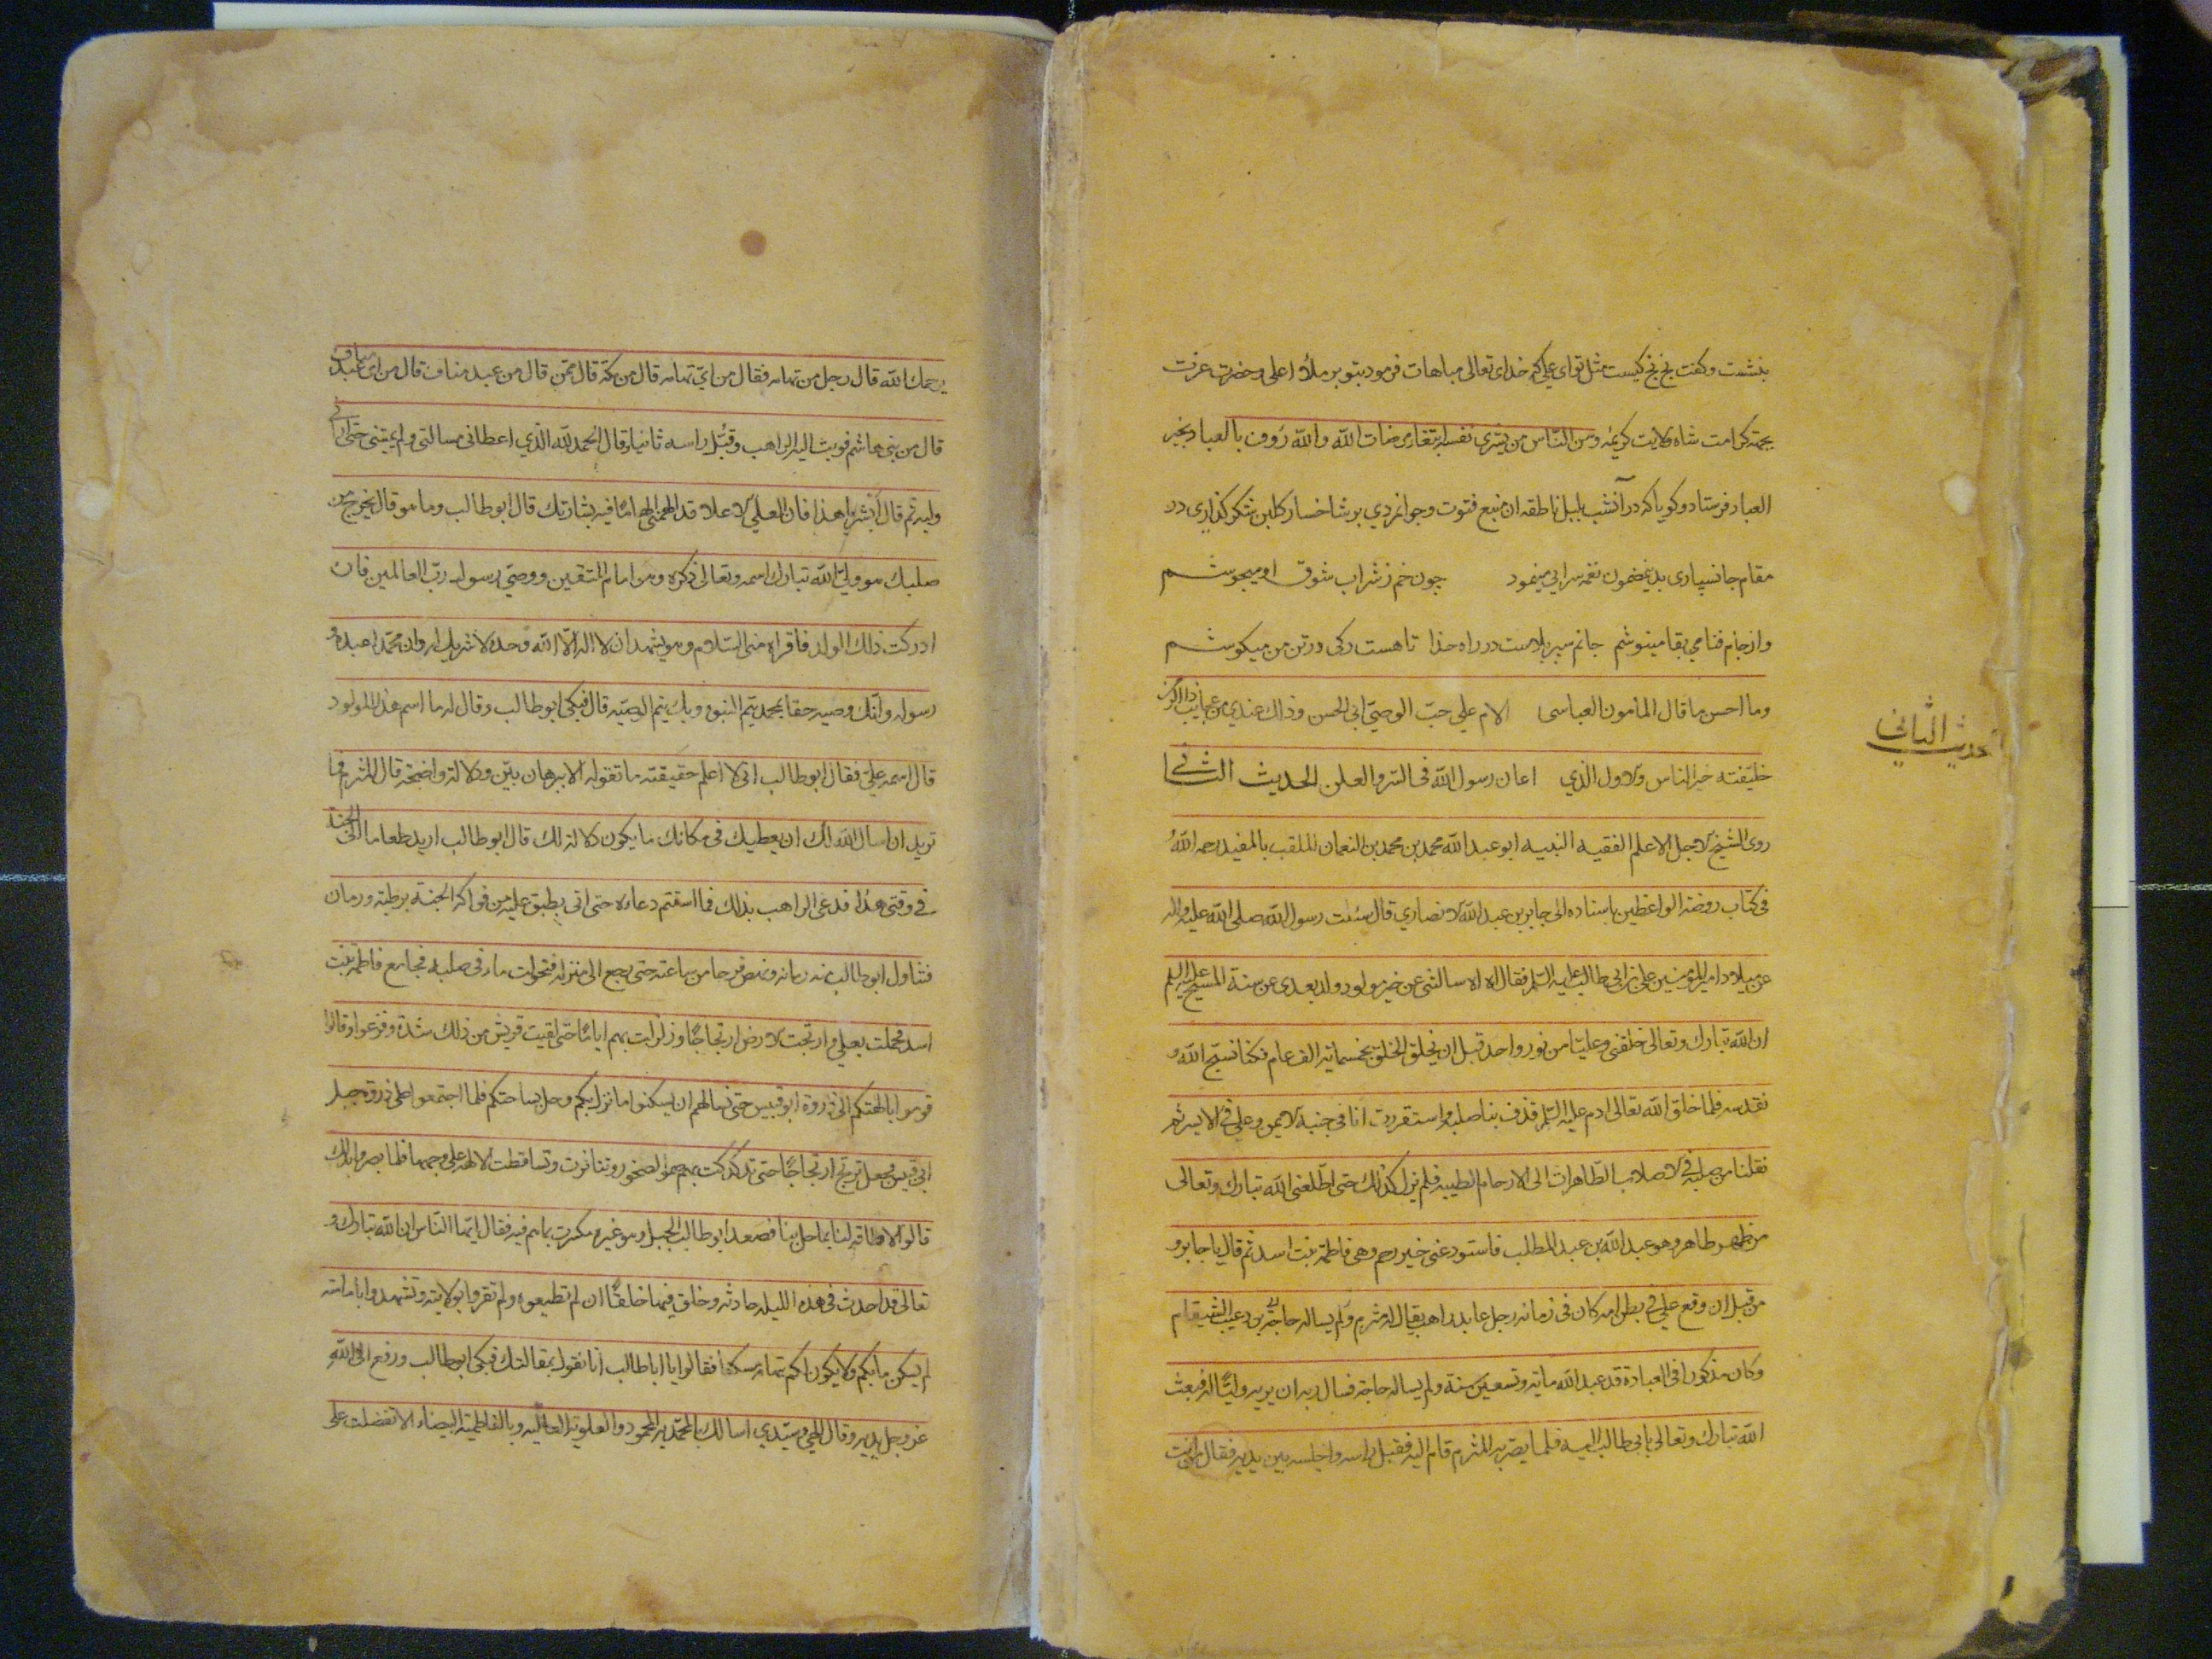 بنشست و کفت بخ بخ کیست مثل تو ای علی که خدای تعالی مباهات فرمود بتو بر ملاء اعلی و حضرت عزت
بجهة کرامت شاه ولایت کریمه ومن الناس من یشری نفسه ابتغاء مرضات الله والله رؤف بالعباد بخیر
العباد فرستاد و کویا که در آنشب بلبل ناطقه ان منبع فتوت و جوانمردی بر شاخسار کلبن شکر کذاری در
مقام جانسپاری بدینمضمون نغمه سرایی مینمود چون خم ز شراب شوق او میجوشم
واز جام فنا می بقا مینوشم جانم سپر بلاست در راه خدا تا هست رکی در تن من میکوشم
وما احسن ما قال المامون العباسی الام علی حب الوصی ابی الحسن وذاک عندی من عجایب ذا الزمن
خلیفته خیر الناس والاول الذی اعان رسول الله فی السر والعلن الحدیث الثانی
حدیث الثانی
روی الشیخ الاجل الاعلم الفقیه النبیه ابو عبد الله محمد بن محمد بن النعمان الملقب بالمفید رحمه الله
فی کتاب روضة الواعظین باسناده الی جابر بن عبد الله الانصاری قال سئلت رسول الله صلی الله علیه واله
عن میلاد امیر المؤمنین علی بن ابی طالب علیه السلم فقال اه اه سالتنی عن خیر مولود ولد بعدی عن سنة المسیح علیه السلم
ان الله تبارک وتعالی خلقنی وعلیا من نور واحد قبل ان یخلق الخلق بخمسمایة الف عام فکنا نسبح الله و
نقدسه فلما خلق الله تعالی ادم علیه السلم قذف بنا صلبه واستقررت انا فی جنبه الایمن وعلی فی الایسر ثم
نقلنا من صلبه فی الاصلاب الطاهرات الی الارحام الطیبه فلم نزل کذلک حتی اطلعنی الله تبارک وتعالی
من ظهر طاهر وهو عبد الله بن عبد المطلب فاستودعنی خیر رحم وهی فاطمة بنت اسد ثم قال یا جابر و
من قبل ان وقع علی فی بطن امه کان فی زمانه رجل عابد راهب یقال له مثرم ولم یساله حاجة بن دعیب الشیقام
وکان مذکورا فی العبادة قد عبد الله مایه وتسعین سنة ولم یساله حاجة فسال ربه ان یریه ولیا له فبعث
الله تبارک وتعالی بابی طالب الیه فلما بصر به المثرم قام الیه فقبل راسه واجلسه بین یدیه فقال من انت
یرحمک الله قال رجل من تهامه فقال من ای تهامه قال من مکة قال ممن قال من عبد مناف قال من ای عبد مناف
قال من بنی هاشم فوثب الیه الراهب وقبل راسه ثانیا وقال الحمد لله الذی اعطانی مسالتی ولم یمتنی حتی ارانی
ولیه ثم قال ابشر یا هذا فان العلی الاعلا قد الهمنی الهاما فیه بشارتک قال ابو طالب وما هو قال یخرج من
صلبک هو ولی الله تبارک اسمه وتعالی ذکره وهو امام المتقین ووصی رسول رب العالمین فان
ادرکت ذلک الولد فاقراه منی السلام وهو یشهد ان لا اله الا الله وحده لا شریک له وان محمدا عبده و
رسوله وانک وصیه حقا بمحمد یتم النبوه وبک یتم الوصیه قال فبکی ابو طالب وقال له ما اسم هذا المولود
قال اسمه علی فقال ابو طالب انی لا اعلم حقیقة ما تقوله الا ببرهان بین ودلالة واضحة قال المثرم فما
ترید ان اسال الله لک ان یعطیک فی مکانک ما یکون دلالة لک قال ابو طالب ارید طعاما من الجنة
فی وقتی هذا فدعی الراهب بذلک فما استتم دعاءه حتی اتی بطبق علیه من فواکه الجنة برطبه ورمان
فتناول ابو طالب منه رمانه ونهض فرحا من ساعته حتی رجع الی منزله فتحولت ماء فی صلبه فجامع فاطمة بنت
اسد فحملت بعلی وارتجت الارض ارتجاجا وزلزلت بهم ایاما حتی لقیت قریش من ذلک شدة وفزعوا وقالوا
قوموا بالهتکم الی ذروة ابو قبیس حتی نسالهم ان یسکنوا ما نزل بکم وحل بساحتکم فلما اجتمعوا علی ذروة جبل
ابی قبیس فجعل یرتج ارتجاجا حتی تدکدکت بهم صم الصخور وتناثرت وتساقطت الالهة علی وجهها فلما بصروا بذلک
قالوا لا طاقة لنا بما حل بنا فصعد ابو طالب الجبل وهو غیر مکترث بما هم فیه فقال ایها الناس ان الله تبارک و
تعالی قد احدث فی هذه اللیله حادثه وخلق فیها خلقا ان لم تطیعوه ولم تقروا بولایته وتشهدوا بامامته
لم یسکن ما بکم ولا یکون لکم تهامة مسکنا فقالوا یا ابا طالب انا نقول بمقالتک فبکی ابو طالب ورفع الی الله
عز وجل یدیه وقال الهی وسیدی اسالک بالمحمدیه المحمودة والعلویة العالیه وبالفاطمیة البیضاء الا تفضلت علی